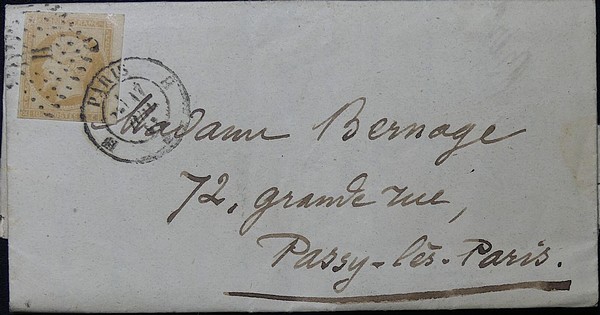 PARIS
H
Madame Bernage
72, grande rue,
Passy-lès-Paris.